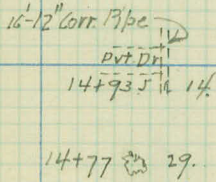 16'-12" Corr. Pipe
Pvt. Dr.
14+93.5 14.
14+77 29.